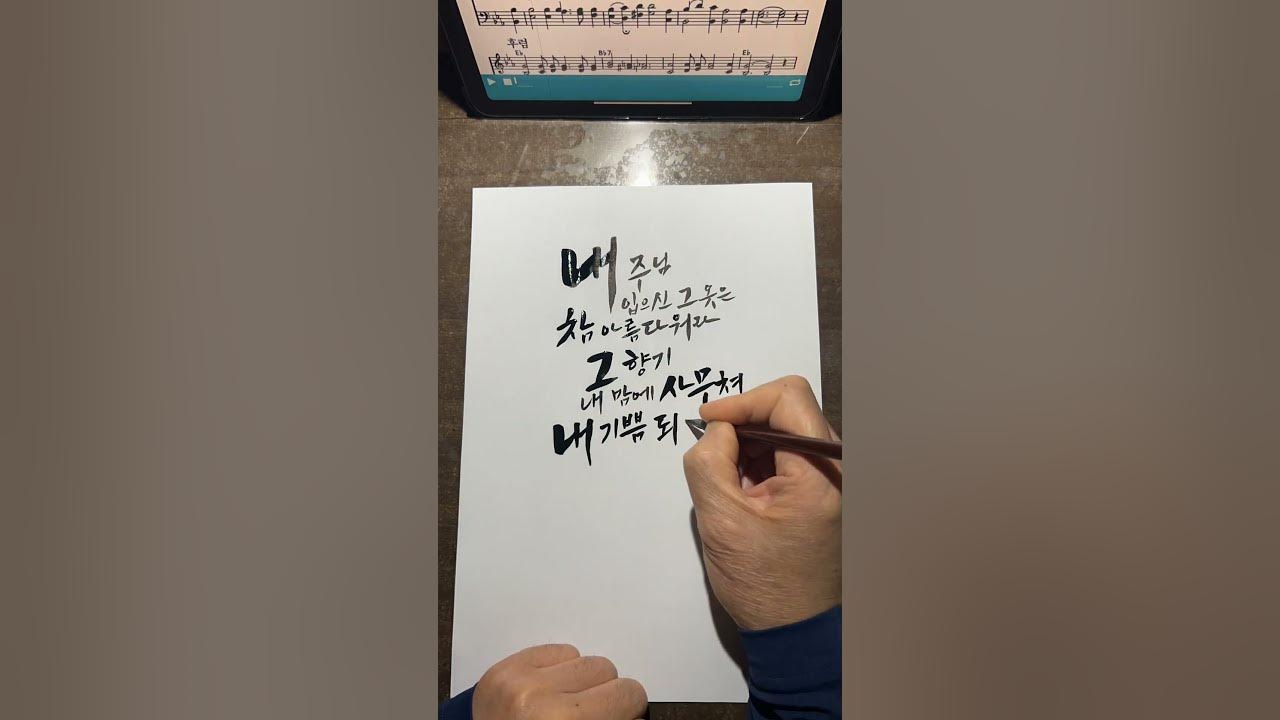 후렴
Eb Bb7 Eb
내 주님
입으신 그 옷은
참 아름다워라
그 향기
내 맘에 사무쳐
내 기쁨 되